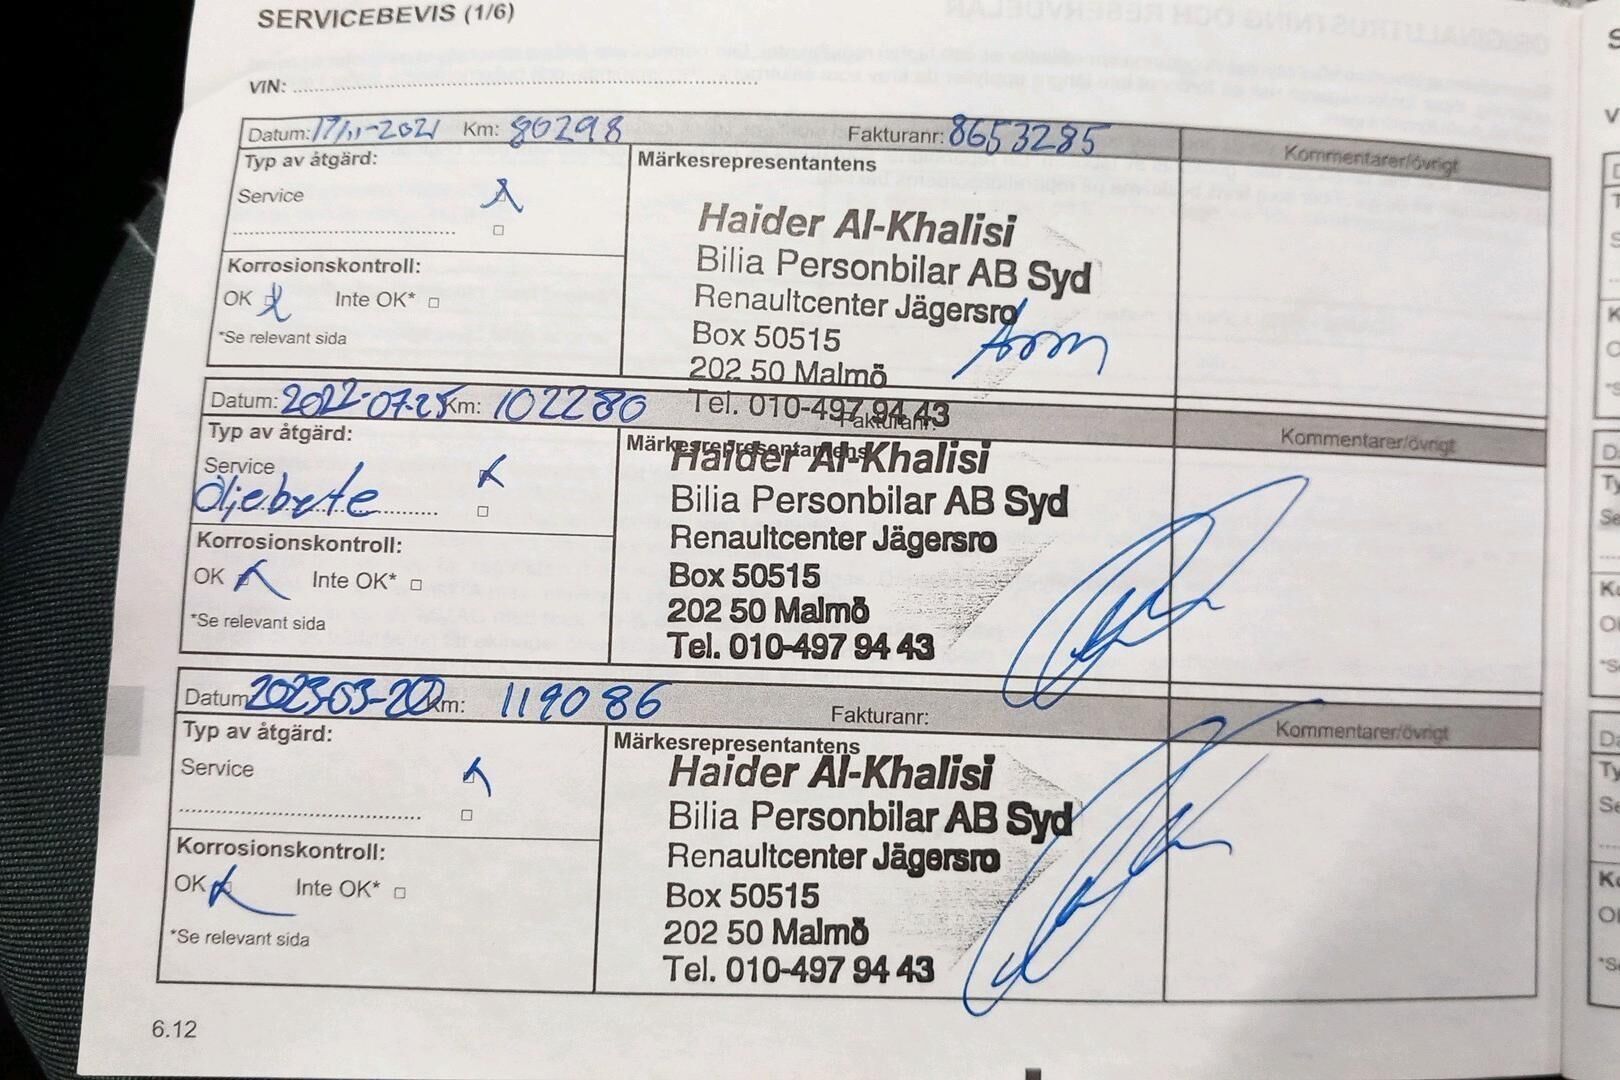 SERVICEBEVIS (1/6)
VIN:
Datum: 17/11-2021 Km: 80298 Fakturanr: 8653285 Kommentarer/övrigt
Typ av åtgärd:
Märkesrepresentantens
Service
Haider Al-Khalisi
Bilia Personbilar AB Syd
Korrosionskontroll:
Renaultcenter Jägersro
OK Inte OK*
Box 50515
*Se relevant sida
202 50 Malmö
Tel. 010-497 94 43
Datum: 2022-07-25 Km: 102280 Fakturanr: Kommentarer/övrigt
Typ av åtgärd:
Märkesrepresentantens
Service
Haider Al-Khalisi
Oljebyte
Bilia Personbilar AB Syd
Renaultcenter Jägersro
Korrosionskontroll:
Box 50515
OK Inte OK*
202 50 Malmö
*Se relevant sida
Tel. 010-497 94 43
Datum: 2023-03-20 Km: 119086 Fakturanr: Kommentarer/övrigt
Typ av åtgärd:
Märkesrepresentantens
Service
Haider Al-Khalisi
Bilia Personbilar AB Syd
Korrosionskontroll:
Renaultcenter Jägersro
OK Inte OK*
Box 50515
*Se relevant sida
202 50 Malmö
Tel. 010-497 94 43
6.12